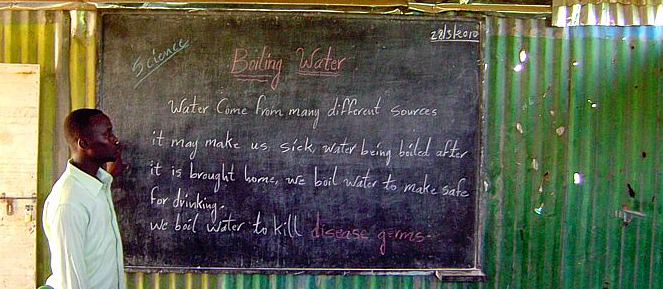 Science
28/3/2010
Boiling Water
Water Come from many different sources
it may make us sick, water being boiled after
it is brought home, we boil water to make safe
for drinking.
we boil water to kill disease germs.